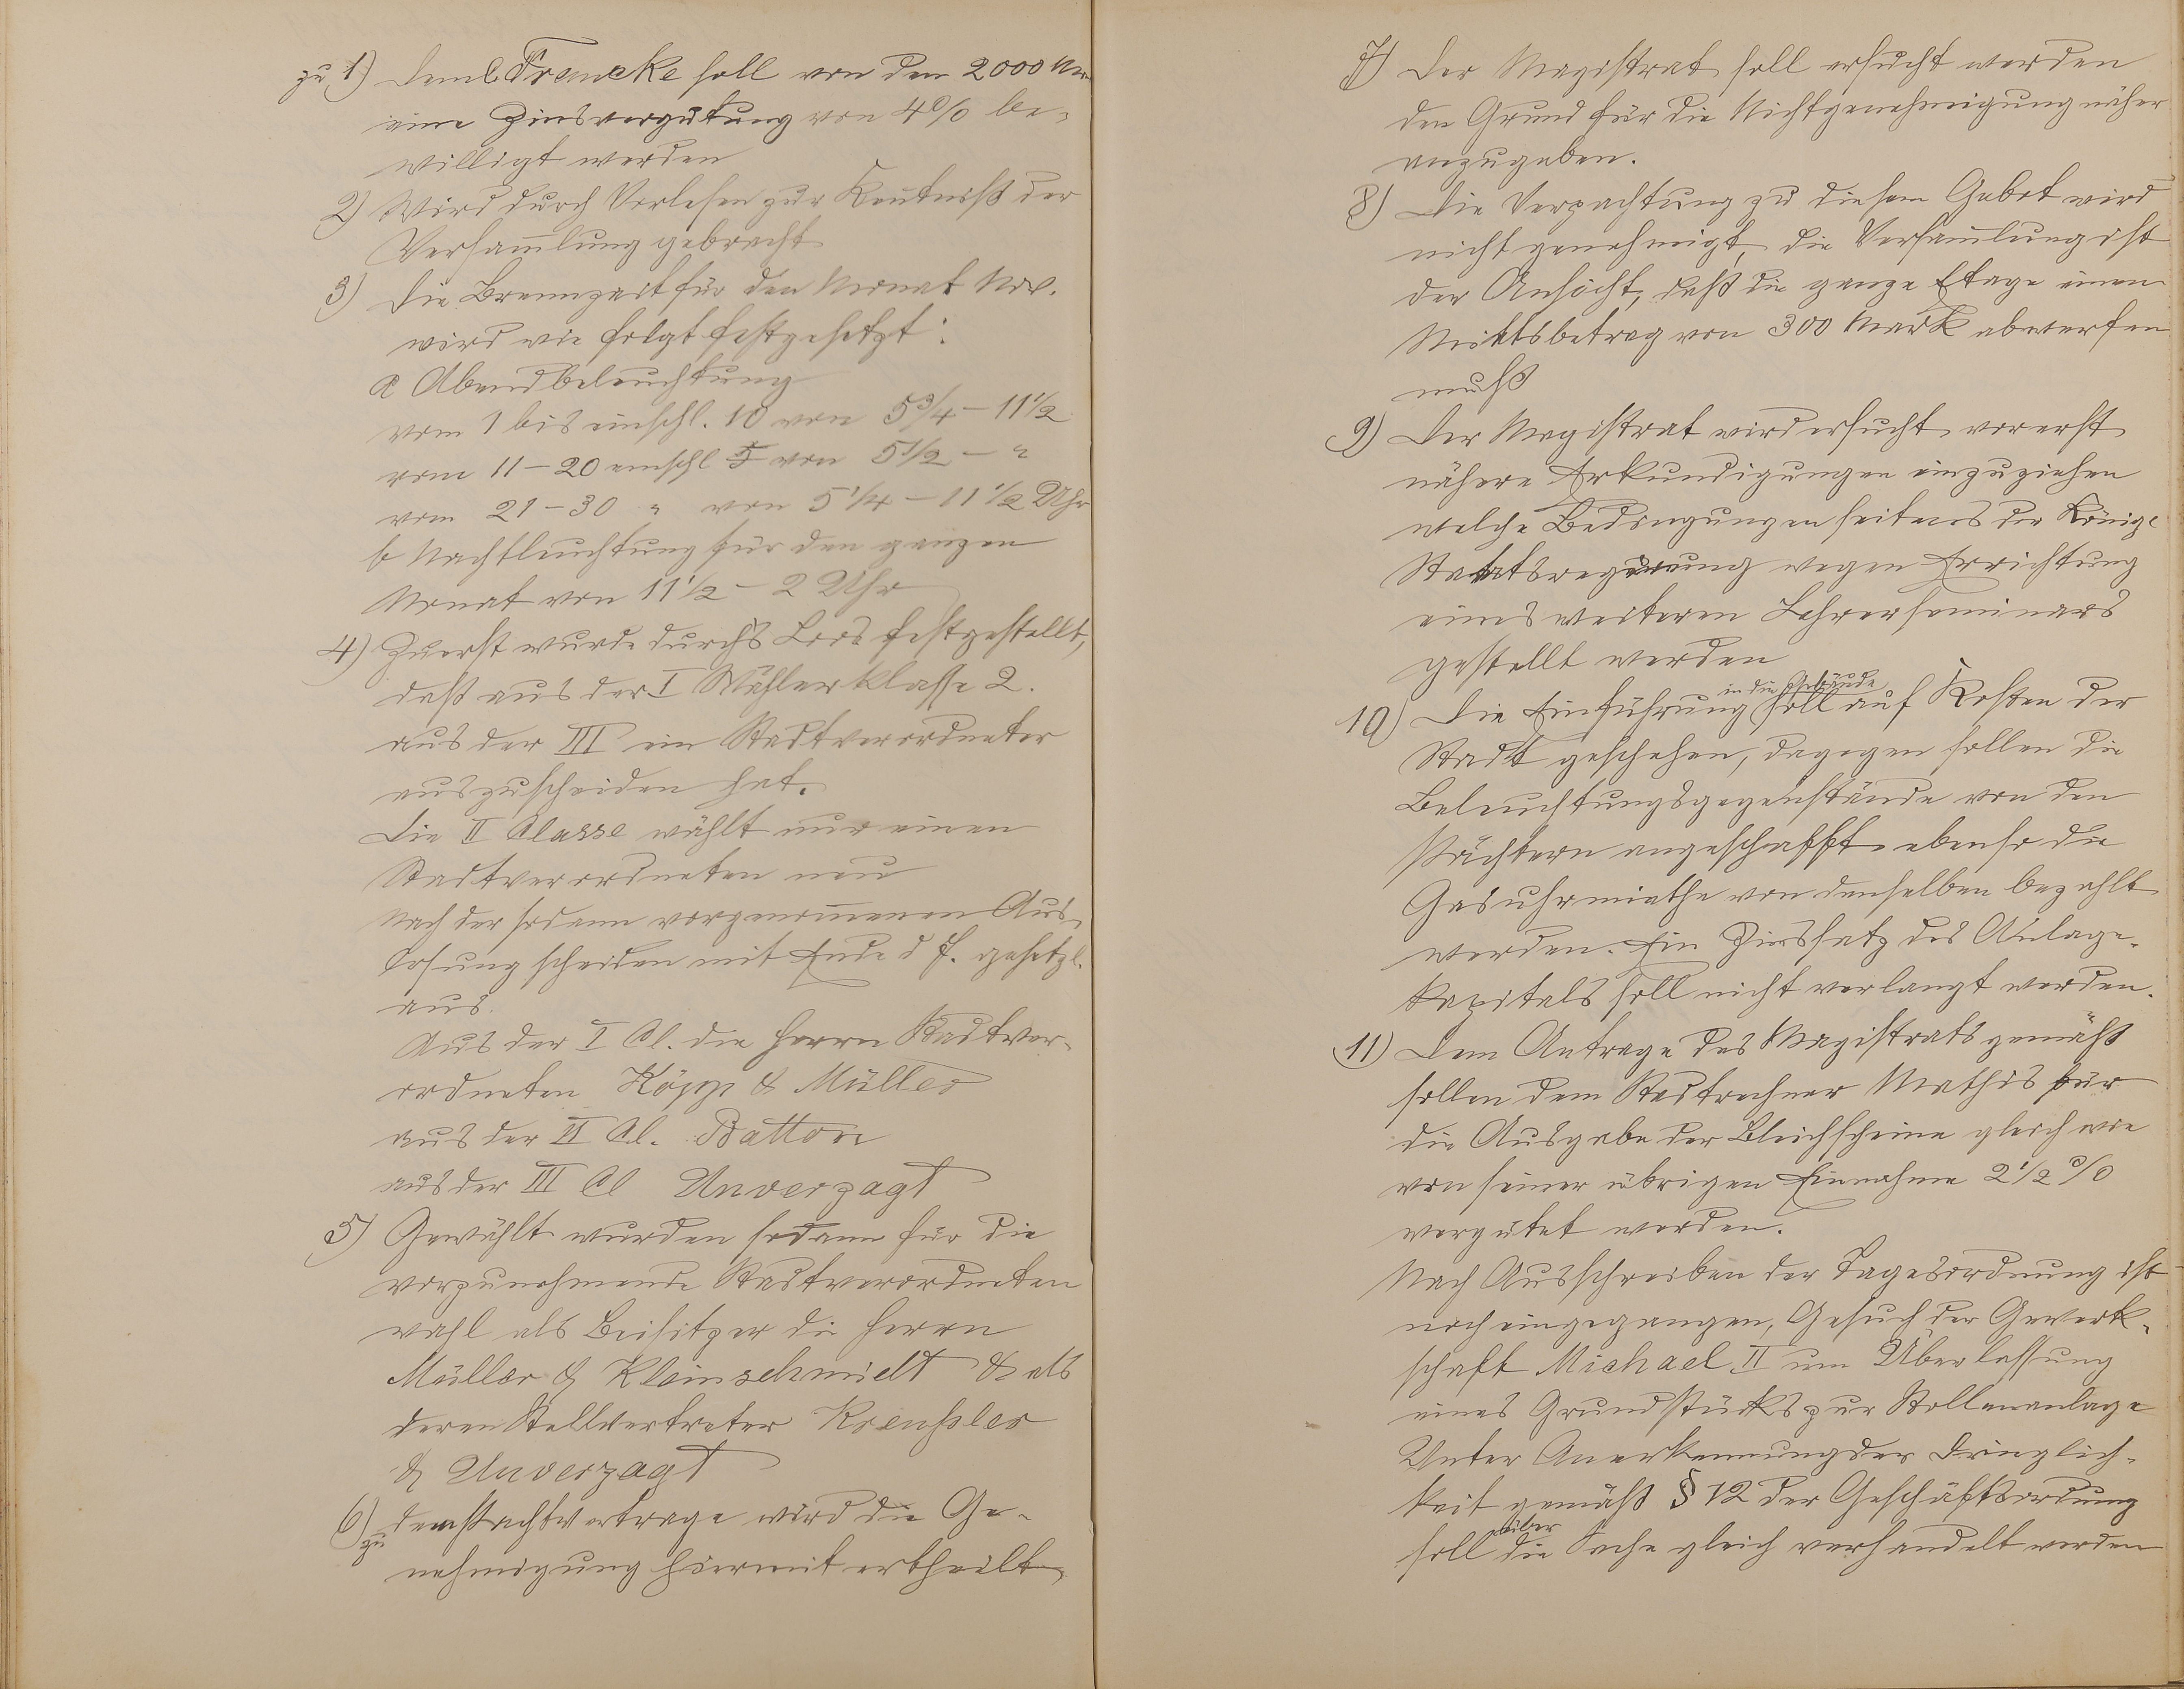 zu 1) Dem C Francke soll von den 2000 Mr
eine Zinsvergütung von 4% be-
willigt werden
2) Wird durch Verlesen zur Kenntniß der
Versam̅lung gebracht
3) Die Brennzeit für den Monat Nov.
wird wie folgt festgesetzt:
a Abendbeleuchtung
vom 1 bis einschl. 10 von 5¾ – 11½
vom 11 – 20 einschl von 5½ – "
vom 21 – 30 " von 5¼ – 11½ Uhr
b Nachtleuchtung für den ganzen
Monat von 11½ – 2 Uhr
4) Zuerst wurde durch's Loos festgestellt,
daß aus der I Wählerklasse 2.
aus der III ein Stadtverordneter
auszuscheiden hat.
Die II Classe wählt nur einen
Stadtverordneten neu
Nach der sodann vorgenom̅enen Aus-
losung scheiden mit Ende d J. gesetzl.
aus.
Aus der I Cl. die Herrn Stadtver-
ordneten Köpp & Müller
aus der II Cl. Batton
aus der III Cl Unverzagt
5) Gewählt wurden sodann für die
vorzunehmende Stadtverordneten
wahl als Beisitzer die Herrn
Müller & Kleinschmidt & als
deren Stellvertreter Kreuhsler
& Unverzagt
6) zu dem Pachtvertrage wird die Ge-
nehmigung hiermit ertheilt
7) Der Magistrat soll ersucht werden
den Grund für die Nichtgenehmigung näher
anzugeben.
8) Die Verpachtung zu diesem Gebot wird
nicht genehmigt, die Versam̅lung ist
der Ansicht, daß die ganze Etage einen
Miethsbetrag von 300 Mark abwerfen
muß
9) Der Magistrat wird ersucht vorerst
nähere Erkundigungen einzuziehen
welche Bedingungen seitens der Königl
Staatsregierung wegen Errichtung
eines weiteren Lehrerseminars
gestellt werden
10) Die Einführung in die Gebäude soll auf Kosten der
Stadt geschehen, dagegen sollen die
Beleuchtungsgegenstände von den
Pächtern angeschafft ebenso die
Gasuhrmiethe von denselben bezahlt
werden. Ein Zinssatz des Anlage-
kapitals soll nicht verlangt werden.
11) Dem Antrage des Magistrats gemäß
sollen dem Stadtrechner Mathis für
die Ausgabe der Bleichscheine gleich wie
von seiner übrigen Einnahme 2½ %
vergütet werden.
Nach Ausschreiben der Tagesordnung ist
noch eingegangen, Gesuch der Gewerk-
schaft Michael II um Überlassung
eines Grundstücks zur Stollenanlage
Unter Anerkennung der Dringlich-
keit gemäß § 12 der Geschäftsordnung
soll über die Sache gleich verhandelt werden